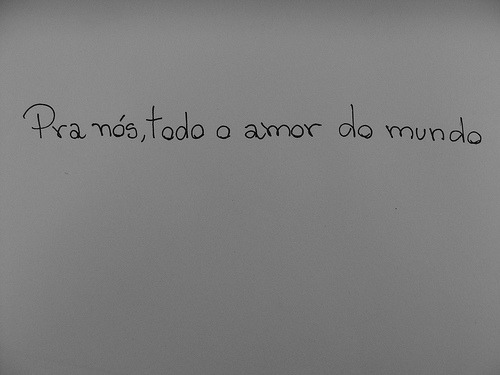 Pra nós, todo o amor do mundo